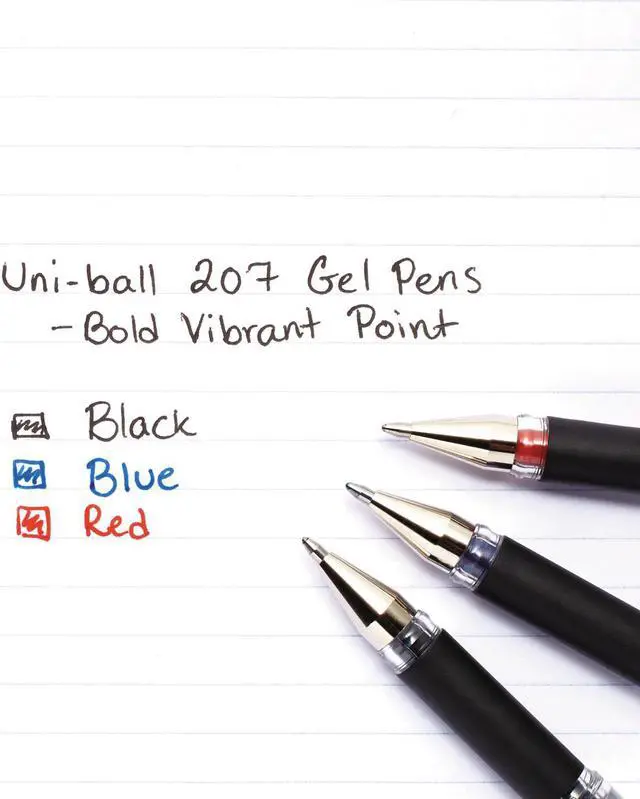 Uni-ball 207 Gel Pens
-Bold Vibrant Point
Black
Blue
Red